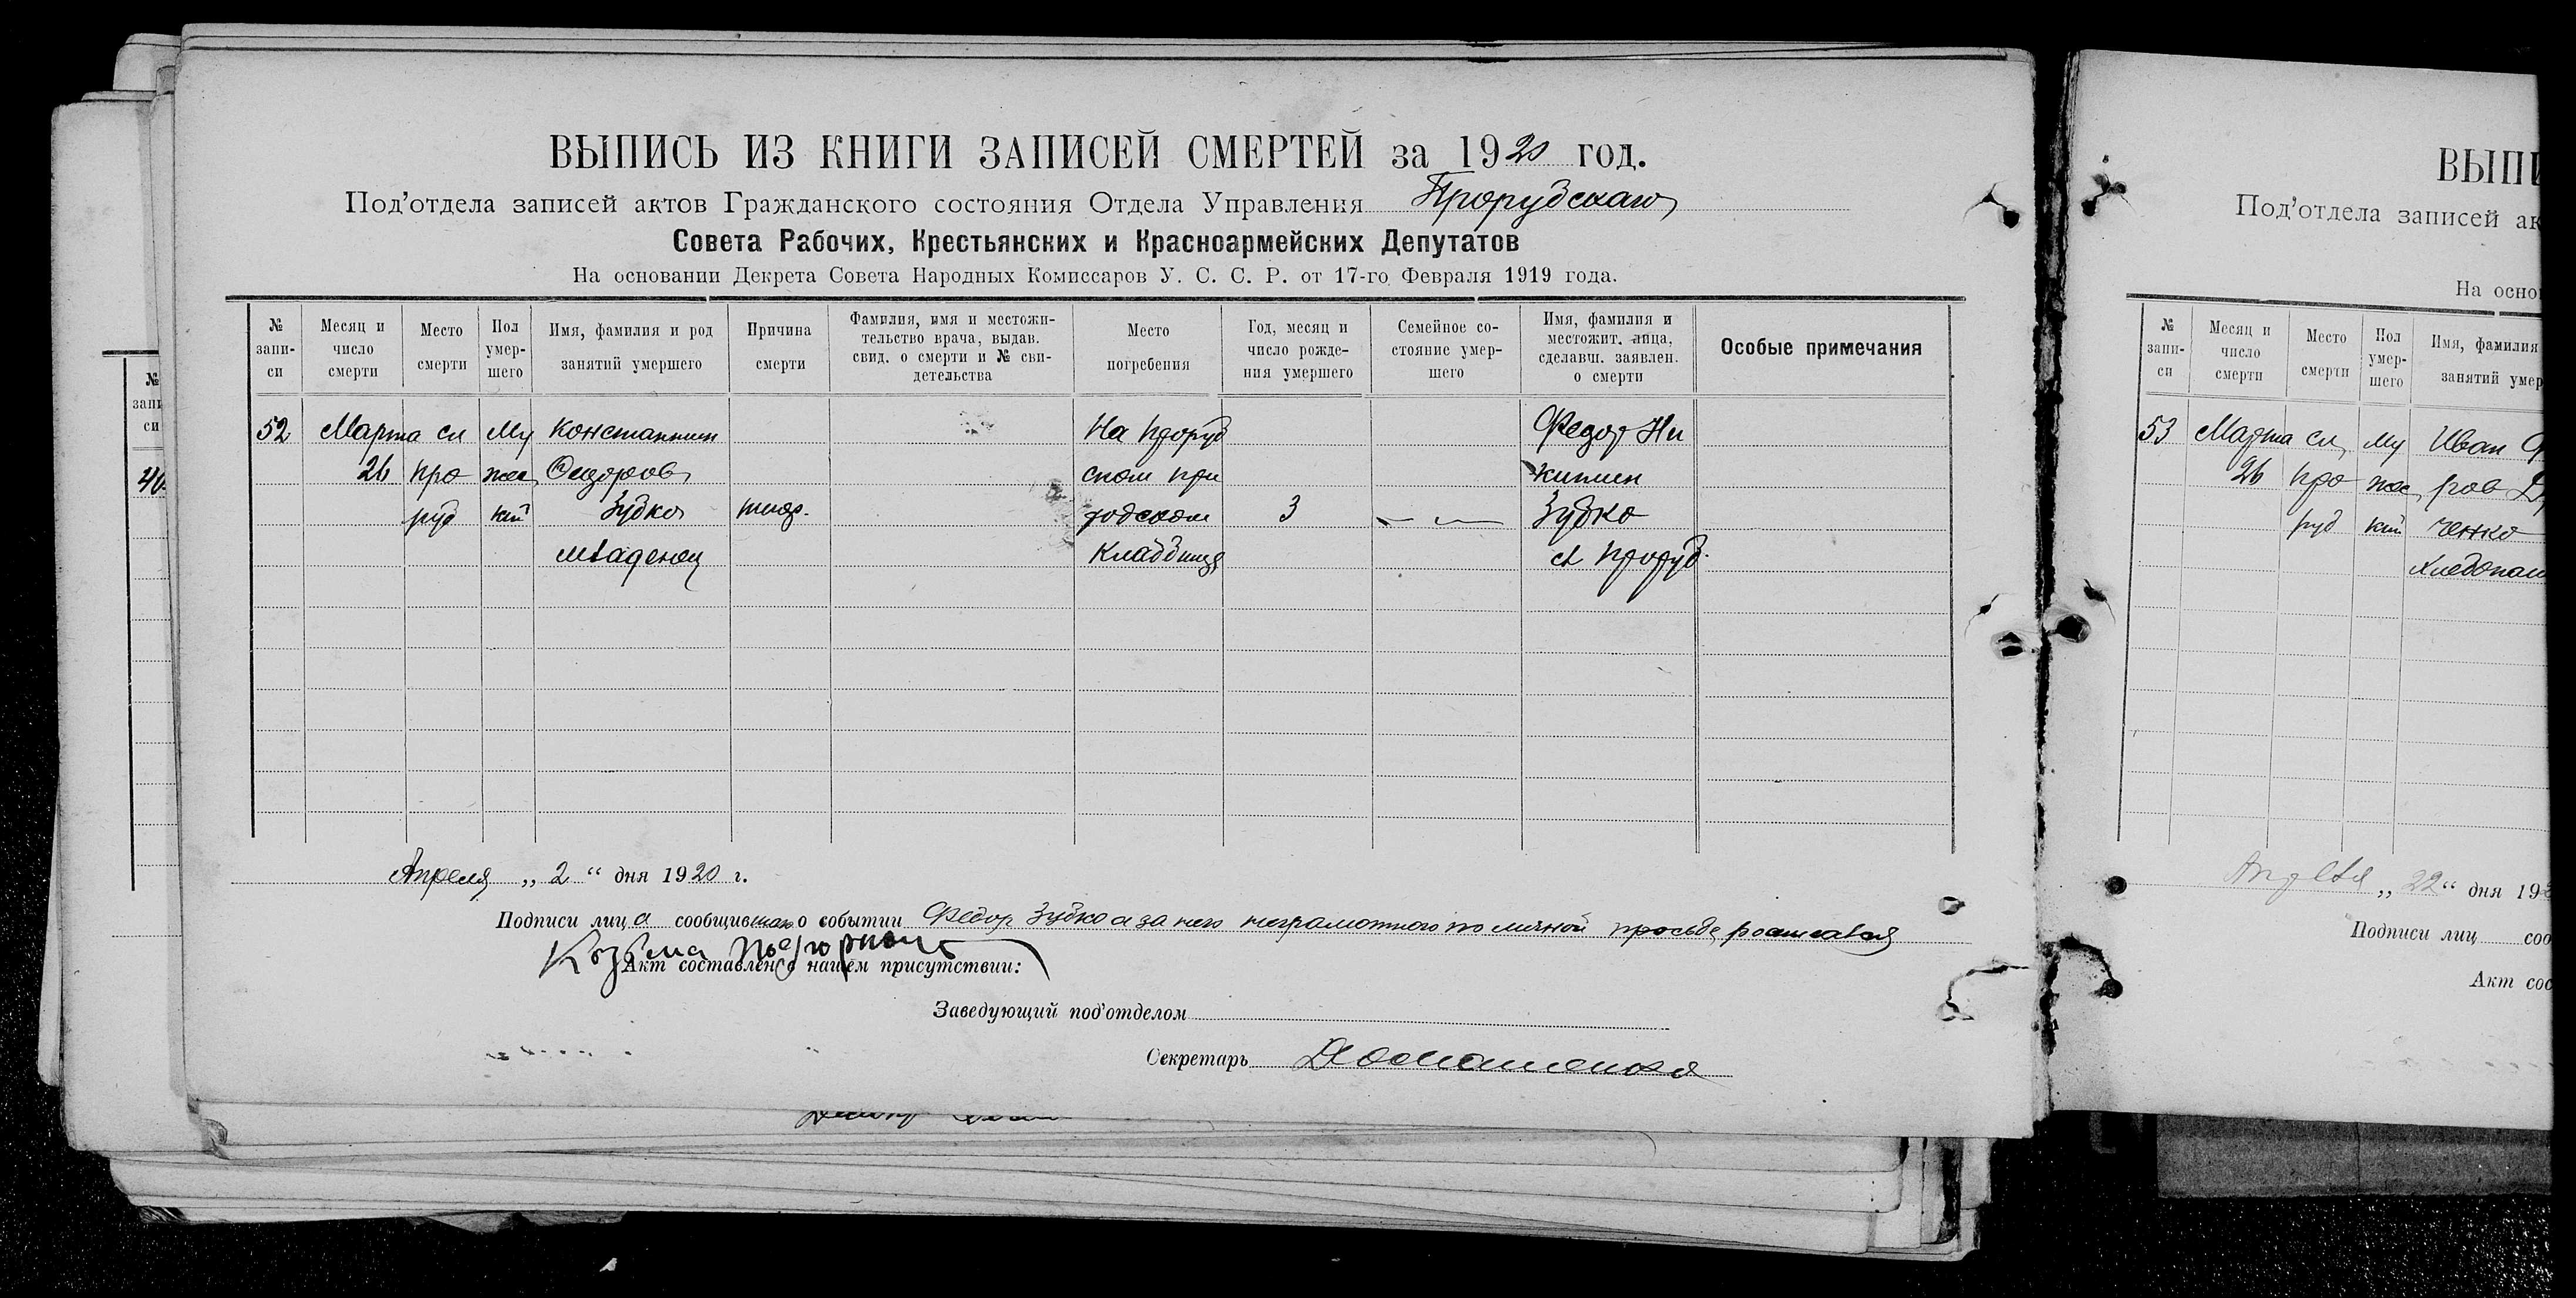 ВЫПИСЬ ИЗ КНИГИ ЗАПИСЕЙ СМЕРТЕЙ за 1920 год.
Под'отдела записей актов Гражданского состояния Отдела Управления Прорубскаго
Совета Рабочих, Крестьянских и Красноармейских Депутатов
На основании Декрета Совета Народных Комиссаров У. С. С. Р. от 17-го Февраля 1919 года.
№ запи-си
Месяц и число смерти
Место смерти
Пол умер-шего
Имя, фамилия и род занятий умершего
Причина смерти
Фамилия, имя и местожи-тельство врача, выдав. свид. о смерти и № сви-детельства
Место погребения
Год, месяц и число рожде-ния умершего
Семейное со-стояние умер-шего
Имя, фамилия и местожит. лица, сделавш. заявлен. о смерти
Особые примечания
52 Марта сл Му Константин На Проруб Федор Ни
26 про жес ском при китин
руб кий Зубко 3 Зубко
младенец Кладбище сл Проруб.
Апреля „ 2 “ дня 1920 г.
Подписи лица сообщившаго о событии Федор Зубко а за него неграмотного по личной просьбе росписался
Козьма
Акт составлен в нашем присутствии:
Заведующий под'отделом
Секретарь
№
запи
си
40
ВЫПИ
Под'отдела записей ак
На осно
№ запи-си
Месяц и число смерти
Место смерти
Пол умер-шего
Имя, фамилия
занятий умер
53 Марта сл му Иван
26 про жес ров
руб кий ченко
Апреля „ 22 “ дня 19
Подписи лиц соо
Акт сос